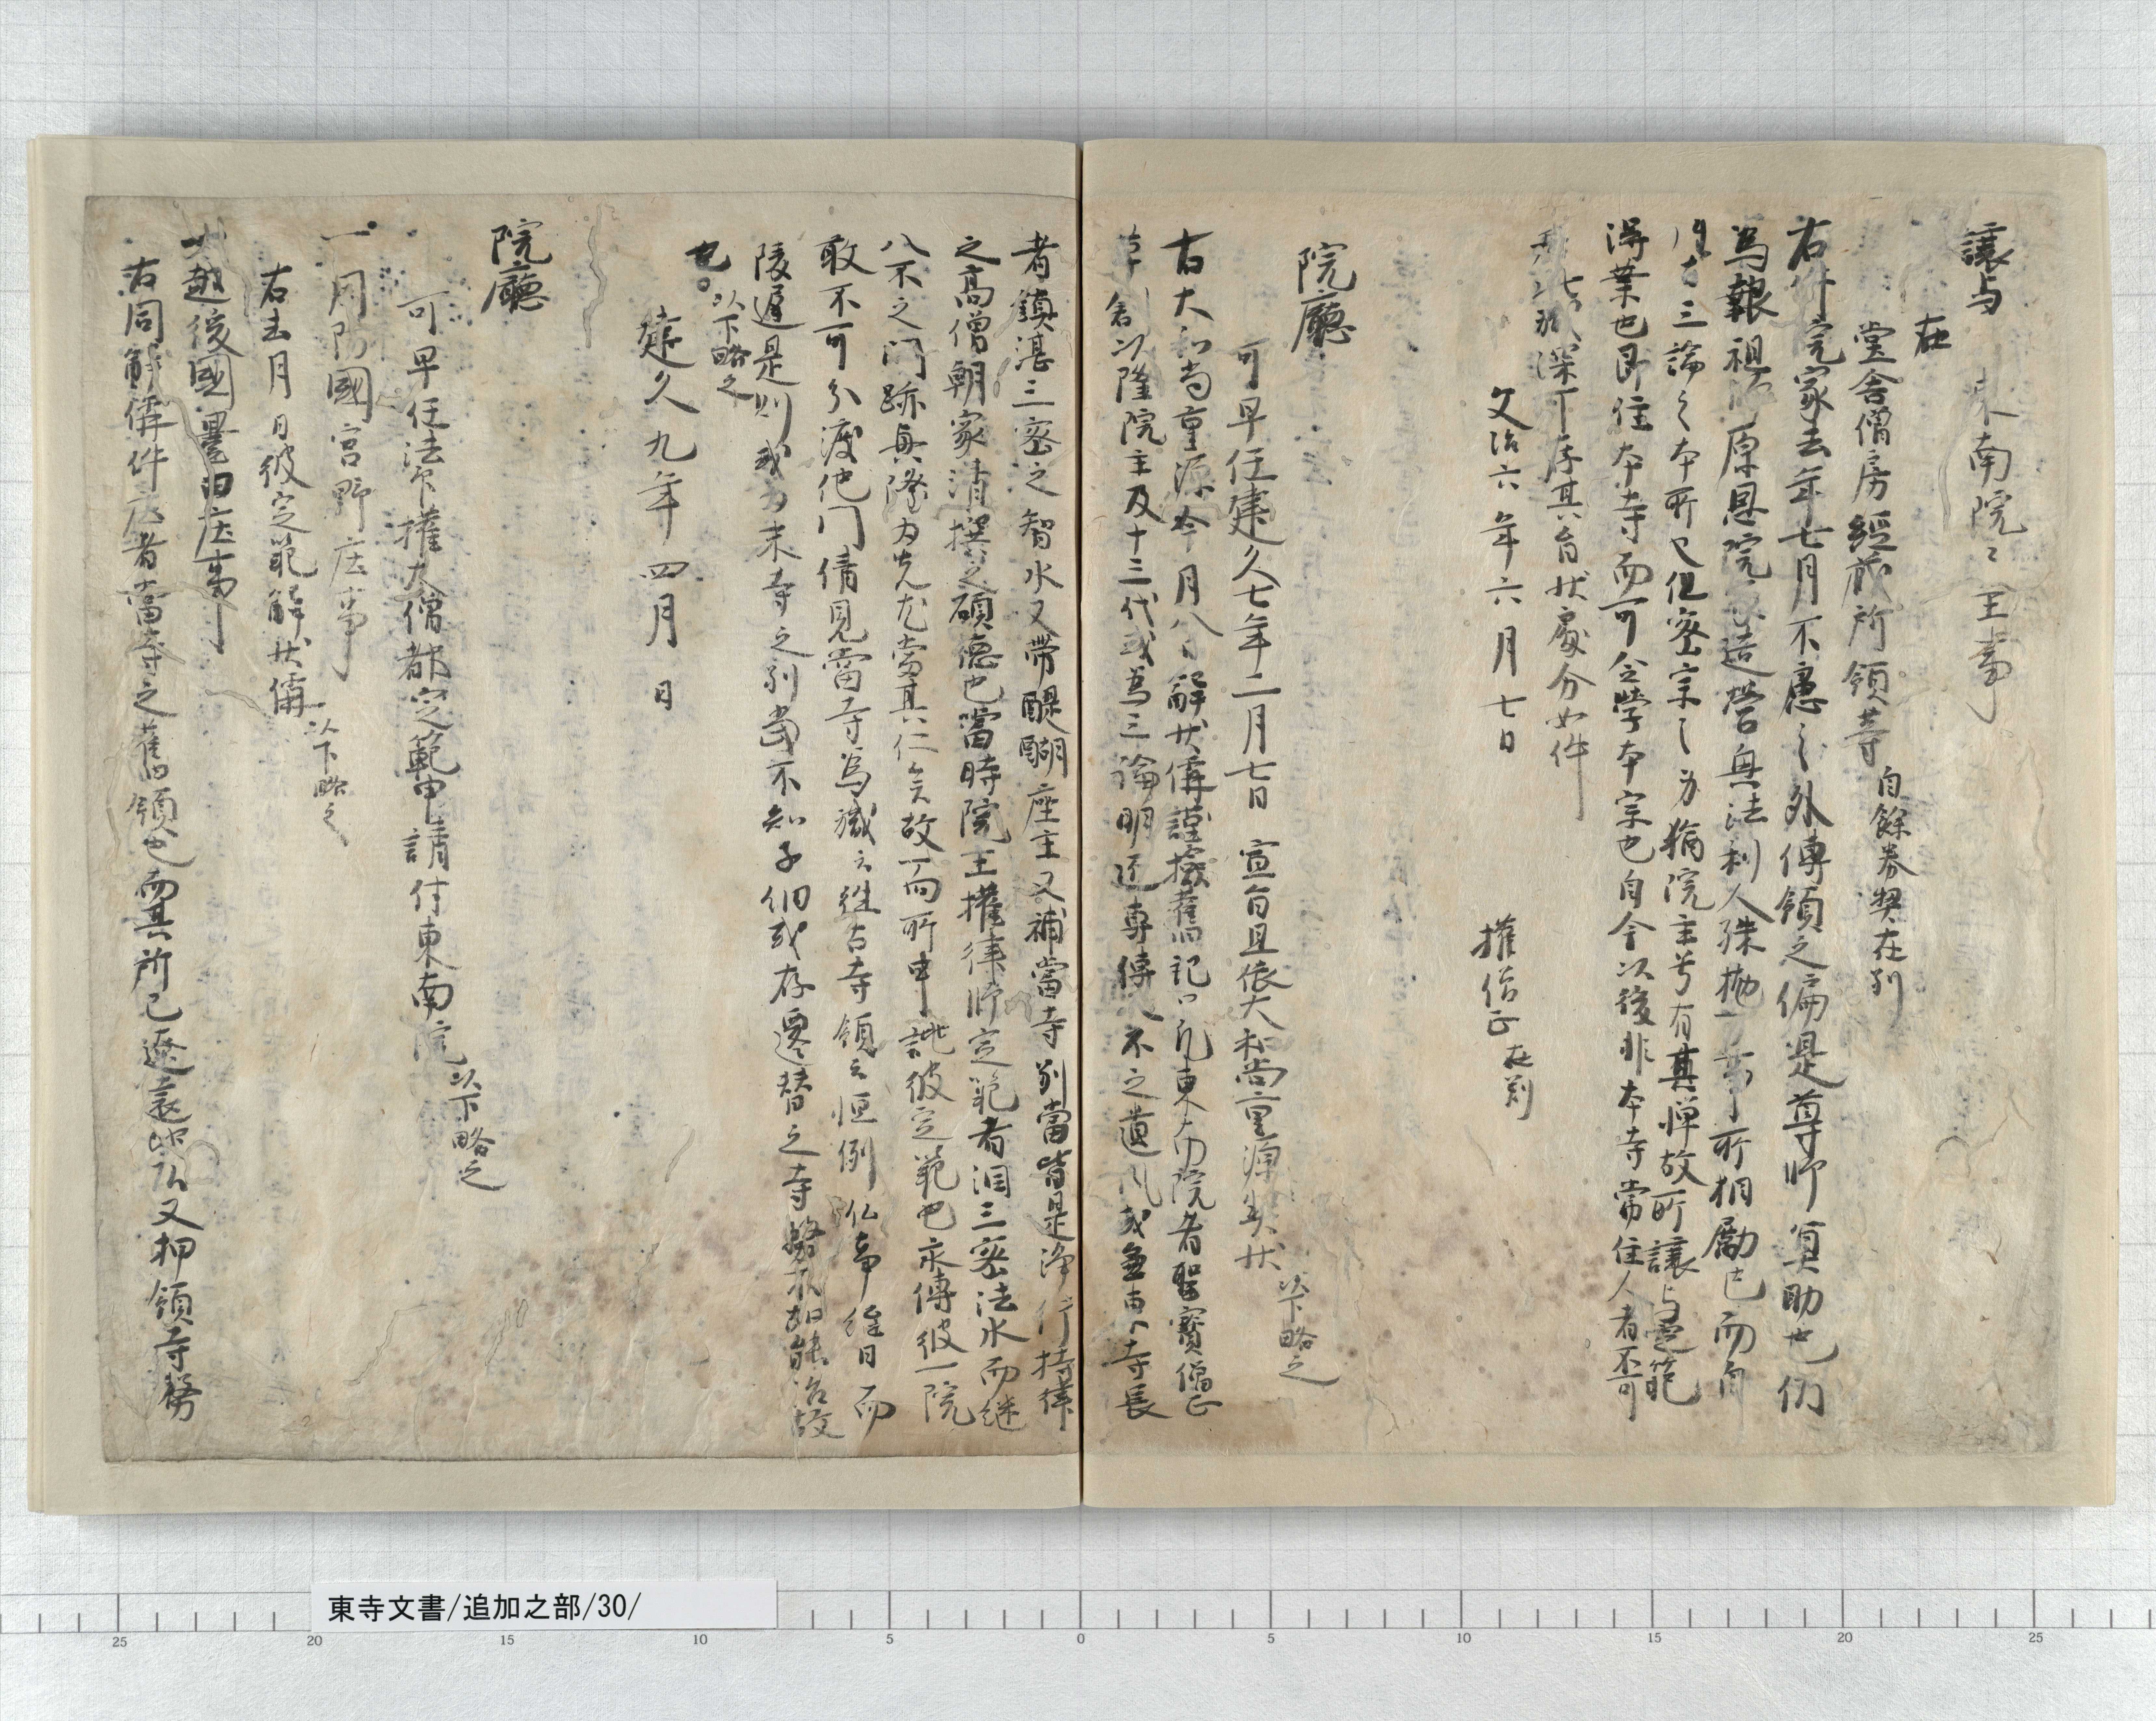 讓与　東南院々主事
在
堂舎僧房經蔵所領等　自餘券契在別
右件院家去年七月不慮之外傳領之偏是尊師冥助也仍
為報祖師原恩院家造營興法利人殊抛万事所相勵也而自
三論之本所也但密宗之身猶院主号有其憚故所讓与定範
得業也即住本寺而可令学本宗也自今以後非本寺常住人者不可
深可存其旨状處分如件
文治六年六月七日
權僧正在判
院廳
可早任建久七年二月七日　宣旨且依大和尚重源状　以下略之
右大和尚重源今月八日解状偁謹撿舊記凡東南院者聖寳僧正
草創以降院主及十三代或為三論明匠専傳八不之遺風或兼東寺長
者鎮湛三密之智水又帶醍醐座主又補當寺別當皆是浄行持律
之高僧朝家清撰之碩徳也當時院主權律師定範者酒三密法水而継
八不之門跡無隙為先尤當其仁矣故所申誂彼定範也永傳彼一院
敢不可分渡他門倩見當寺為軆云往古寺領云恒例仏事逐日而
陵遲是則或為末寺之別當不知子細或存遷替之寺務不如能治故
也　以下略之
建久九年四月　日
院廳
可早任法印權大僧都定範申請付東南院　以下略之
一　周防國宮野庄事
右去月　日彼定範解状偁　以下略之
一　越後國豊田庄事
右同解偁件庄者當寺之舊領也而其所已遼遠此以又押領寺務